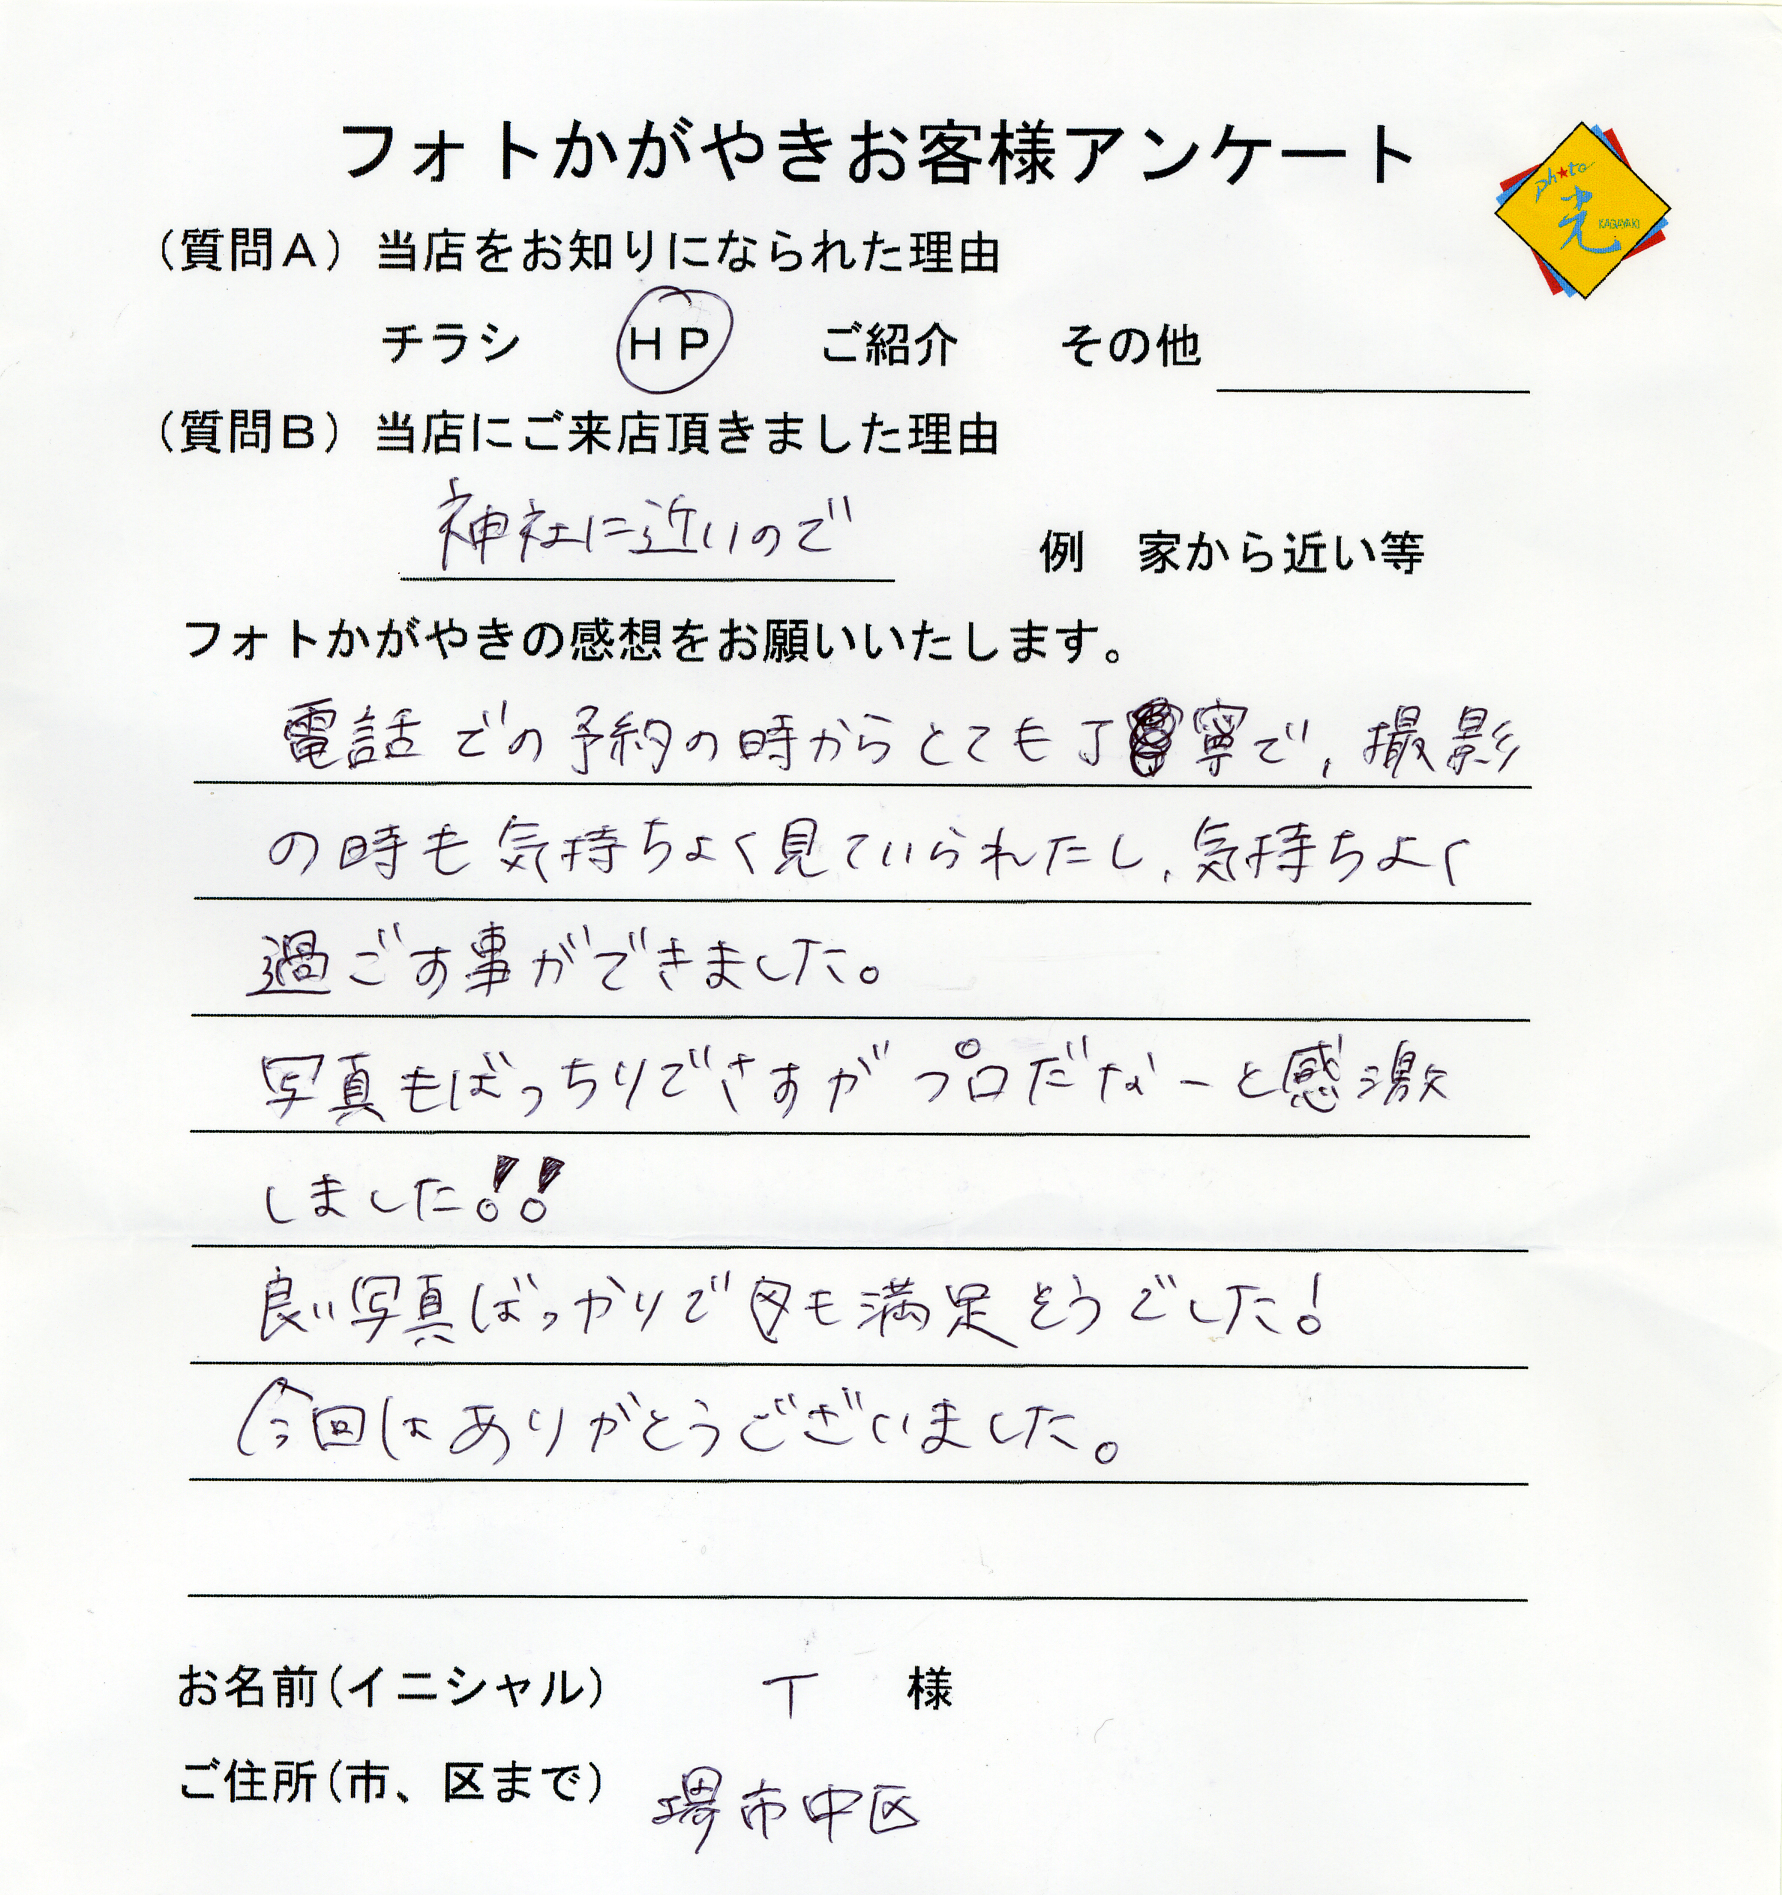 フォトかがやきお客様アンケート
photo
光
KAGAYAKI
(質問A) 当店をお知りになられた理由
チラシ HP ご紹介 その他
(質問B) 当店にご来店頂きました理由
神社に近いので 例 家から近い等
フォトかがやきの感想をお願いいたします。
電話での予約の時からとても丁寧で、撮影
の時も気持ちよく見ていられたし、気持ちよく
過ごす事ができました。
写真もばっちりでさすがプロだなーと感激
しました!!
良い写真ばっかりで も満足そうでした!
今回はありがとうございました。
お名前(イニシャル) T 様
ご住所(市、区まで) 堺市中区